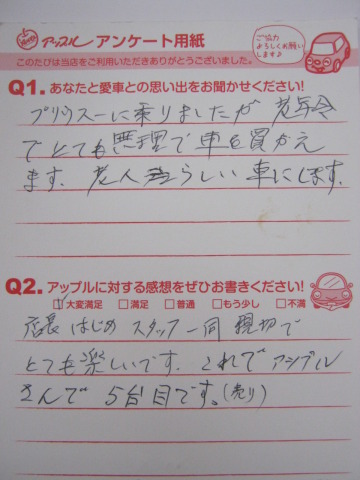 アップル アンケート用紙
ご協力
よろしくお願い
します♪
このたびは当店をご利用いただきありがとうございました。
Q1. あなたと愛車との思い出をお聞かせください!
プリウスーに乗りましたが 老年令
でとても無理で車を買かえ
ます. 老人らしい 車にします.
Q2. アップルに対する感想をぜひお書きください!
□大変満足 □満足 □普通 □もう少し □不満
店長はじめ スタッフ一同 親切で
とても楽しいです. これでアップル
さんで 5台目です。(売り)